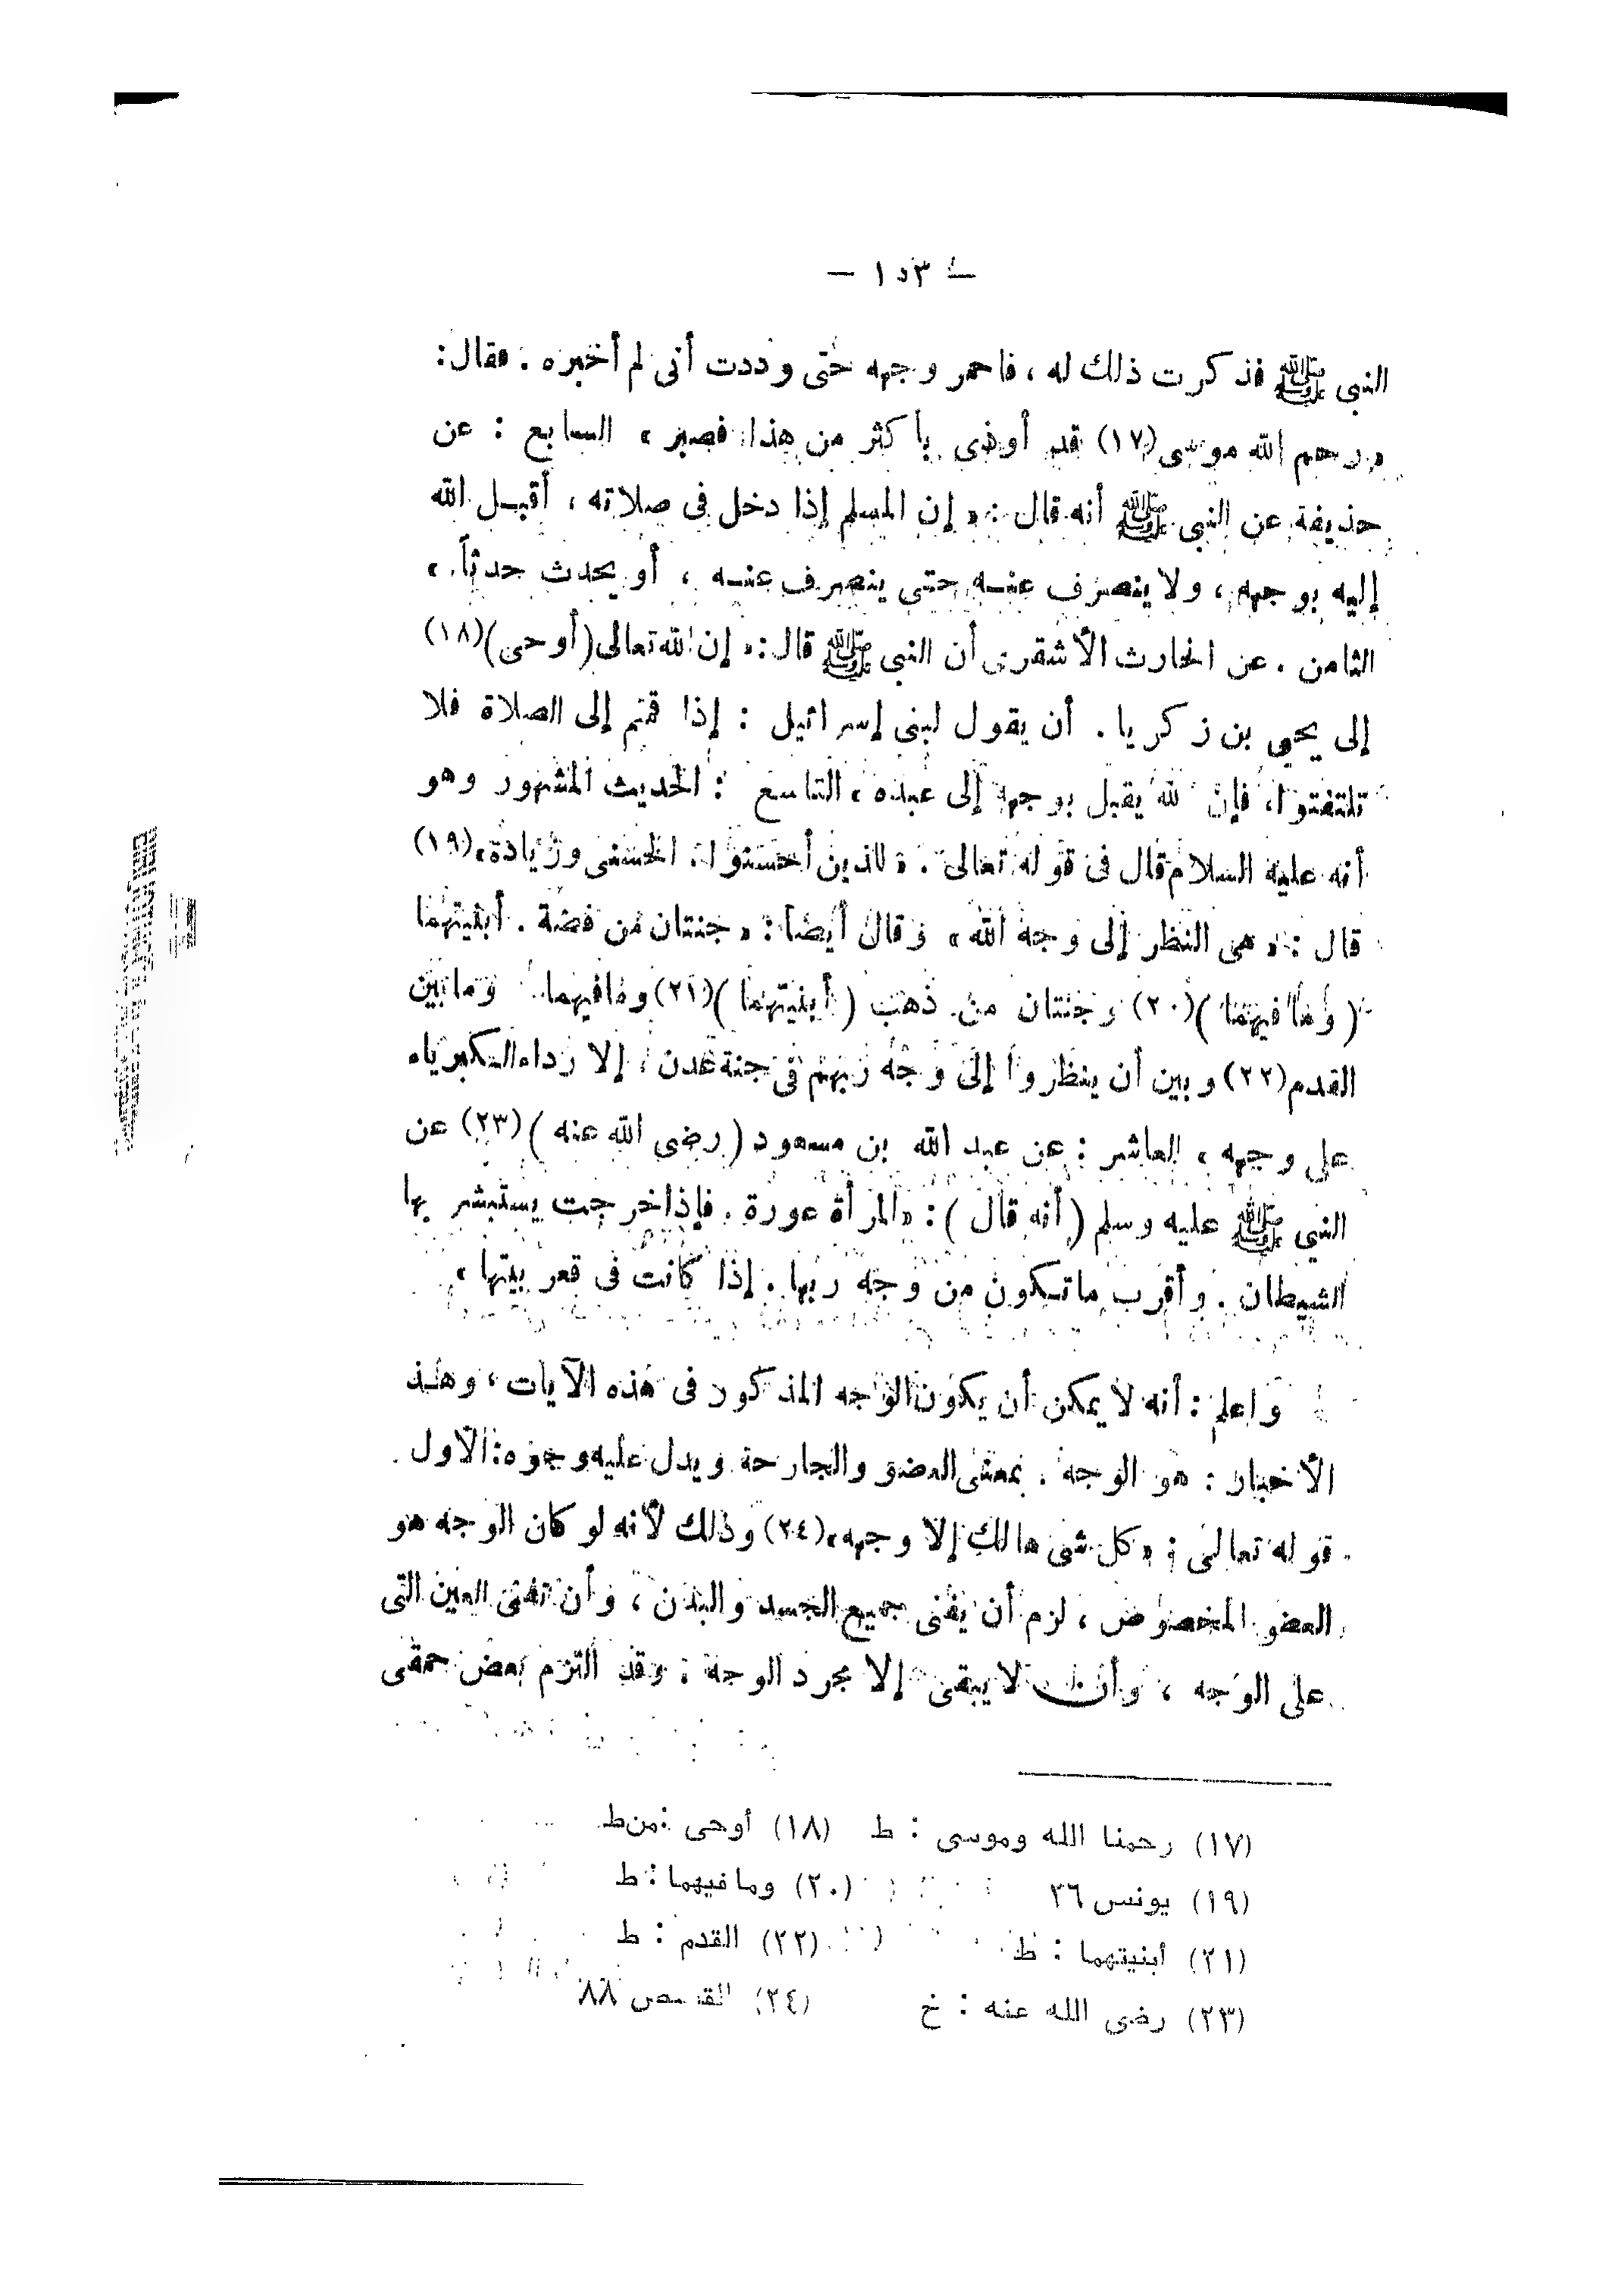 — ١٥٣ —
النبى ﷺ فذكرت ذلك له ، فاحمر وجهه حتى وددت أنى لم أخبره . فقال :
« رحم الله موسى (١٧) قد أوذى بأكثر من هذا فصبر » السابع : عن
حذيفة عن النبى ﷺ أنه قال : « إن المسلم إذا دخل فى صلاته ، أقبل الله
إليه بوجهه ، ولا ينصرف عنه حتى ينصرف عنه ، أو يحدث حدثاً . »
الثامن . عن الحارث الأشقرى أن النبى ﷺ قال : « إن الله تعالى (أوحى) (١٨)
إلى يحيى بن زكريا . أن يقول لبنى إسرائيل : إذا قمتم إلى الصلاة فلا
تلتفتوا ، فإن الله يقبل بوجهه إلى عبده » التاسع : الحديث المشهور وهو
أنه عليه السلام قال فى قوله تعالى : « للذين أحسنوا . الحسنى وزيادة » (١٩)
قال : « هى النظر إلى وجه الله » وقال أيضاً : « جنتان من فضة . أبنيتهما
( وما فيهما ) (٢٠) وجنتان من ذهب ( أبنيتهما ) (٢١) وما فيهما . وما بين
القدم (٢٢) وبين أن ينظروا إلى وجه ربهم فى جنة عدن ، إلا رداء الكبرياء
على وجهه » العاشر : عن عبد الله بن مسعود ( رضى الله عنه ) (٢٣) عن
النبى ﷺ عليه وسلم ( أنه قال ) : « المرأة عورة . فإذا خرجت يستبشر بها
الشيطان . وأقرب ما تكون من وجه ربها . إذا كانت فى قعر بيتها »
واعلم : أنه لا يمكن أن يكون الوجه المذكور فى هذه الآيات ، وهذ
الأخبار : هو الوجه . بمعنى العضو والجارحة ويدل عليه وجوه : الأول
قوله تعالى : « كل شىء هالك إلا وجهه » (٢٤) وذلك لأنه لو كان الوجه هو
العضو المخصوص ، لزم أن يفنى جميع الجسد والبدن ، وأن تفنى العين التى
على الوجه ، وأن لا يبقى إلا مجرد الوجه : وقد التزم بعض حمقى
(١٧) رحمنا الله وموسى : ط (١٨) أوحى : من ط
(١٩) يونس ٢٦ (٢٠) وما فيهما : ط
(٢١) أبنيتهما : ط (٢٢) القدم : ط
(٢٣) رضى الله عنه : خ (٢٤) القصص ٨٨